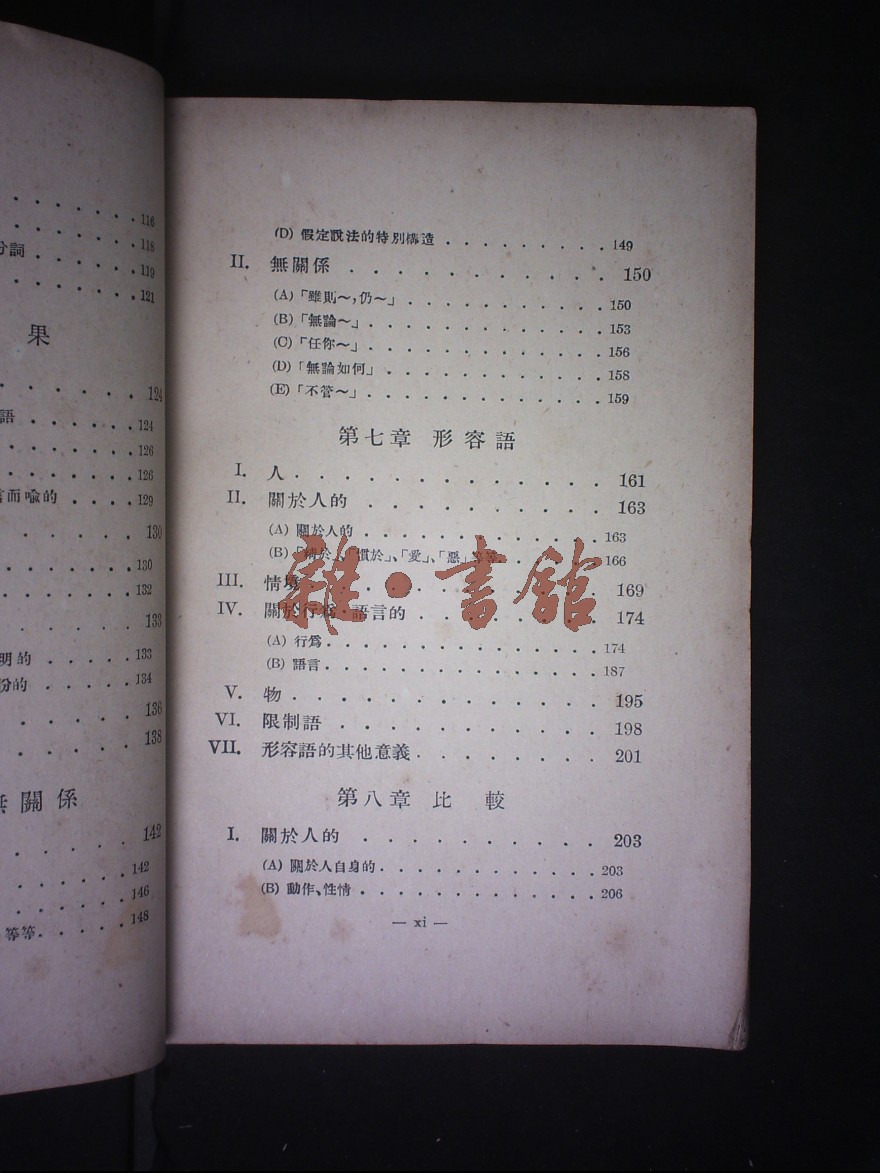 116
118
分詞 . . . . . . 119
121
果
124
語 . . . . . . 124
126
126
言而喻的 . . . . 129
130
130
132
133
明的 . . . . . 133
份的 . . . . . 134
136
138
無關係
142
142
146
等等. . . . . . 148
(D) 假定說法的特別構造 . . . . . . . . . 149
II. 無關係 . . . . . . . . . . 150
(A)「雖則～,仍～」 . . . . . . . . . . 150
(B)「無論～」. . . . . . . . . . . . 153
(C)「任你～」. . . . . . . . . . . . 156
(D)「無論如何」 . . . . . . . . . . . 158
(E)「不管～」. . . . . . . . . . . . 159
第七章 形容語
I. 人. . . . . . . . . . . . . 161
II. 關於人的 . . . . . . . . . . 163
(A) 關於人的 . . . . . . . . . . . . 163
(B)「精於」、「慣於」、「愛」、「惡」等等. . . . . 166
III. 情境 . . . . . . . . . . . . 169
IV. 關於行爲·語言的 . . . . . . . . 174
(A) 行爲. . . . . . . . . . . . . . 174
(B) 語言. . . . . . . . . . . . . . 187
V. 物. . . . . . . . . . . . . 195
VI. 限制語 . . . . . . . . . . . 198
VII. 形容語的其他意義. . . . . . . . 201
第八章 比較
I. 關於人的 . . . . . . . . . . 203
(A) 關於人自身的. . . . . . . . . . . 203
(B) 動作、性情 . . . . . . . . . . . . 206
— xi —
雜·書館